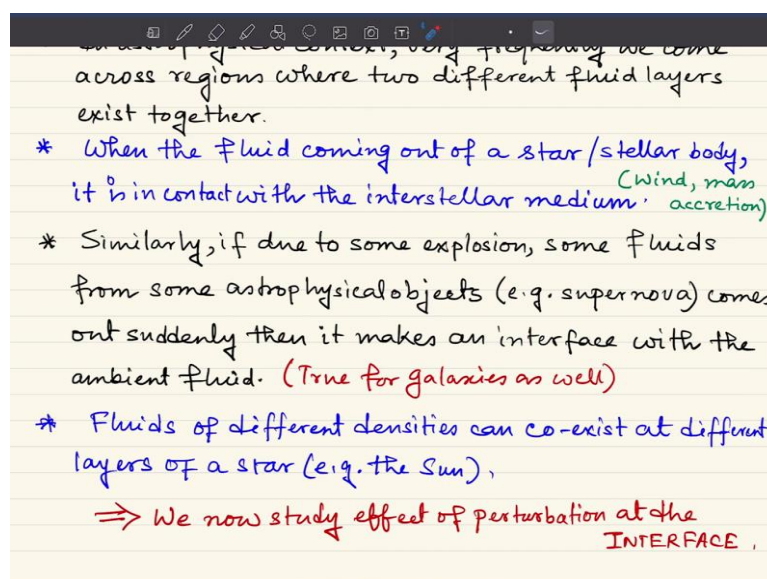 astrophysical context, very frequently we come
across regions where two different fluid layers
exist together.
* When the fluid coming out of a star/stellar body,
it is in contact with the interstellar medium. (Wind, mass
accretion)
* Similarly, if due to some explosion, some fluids
from some astrophysical objects (e.g. supernova) comes
out suddenly then it makes an interface with the
ambient fluid. (True for galaxies as well)
* Fluids of different densities can co-exist at different
layers of a star (e.g. the Sun),
⇒ We now study effect of perturbation at the
INTERFACE.